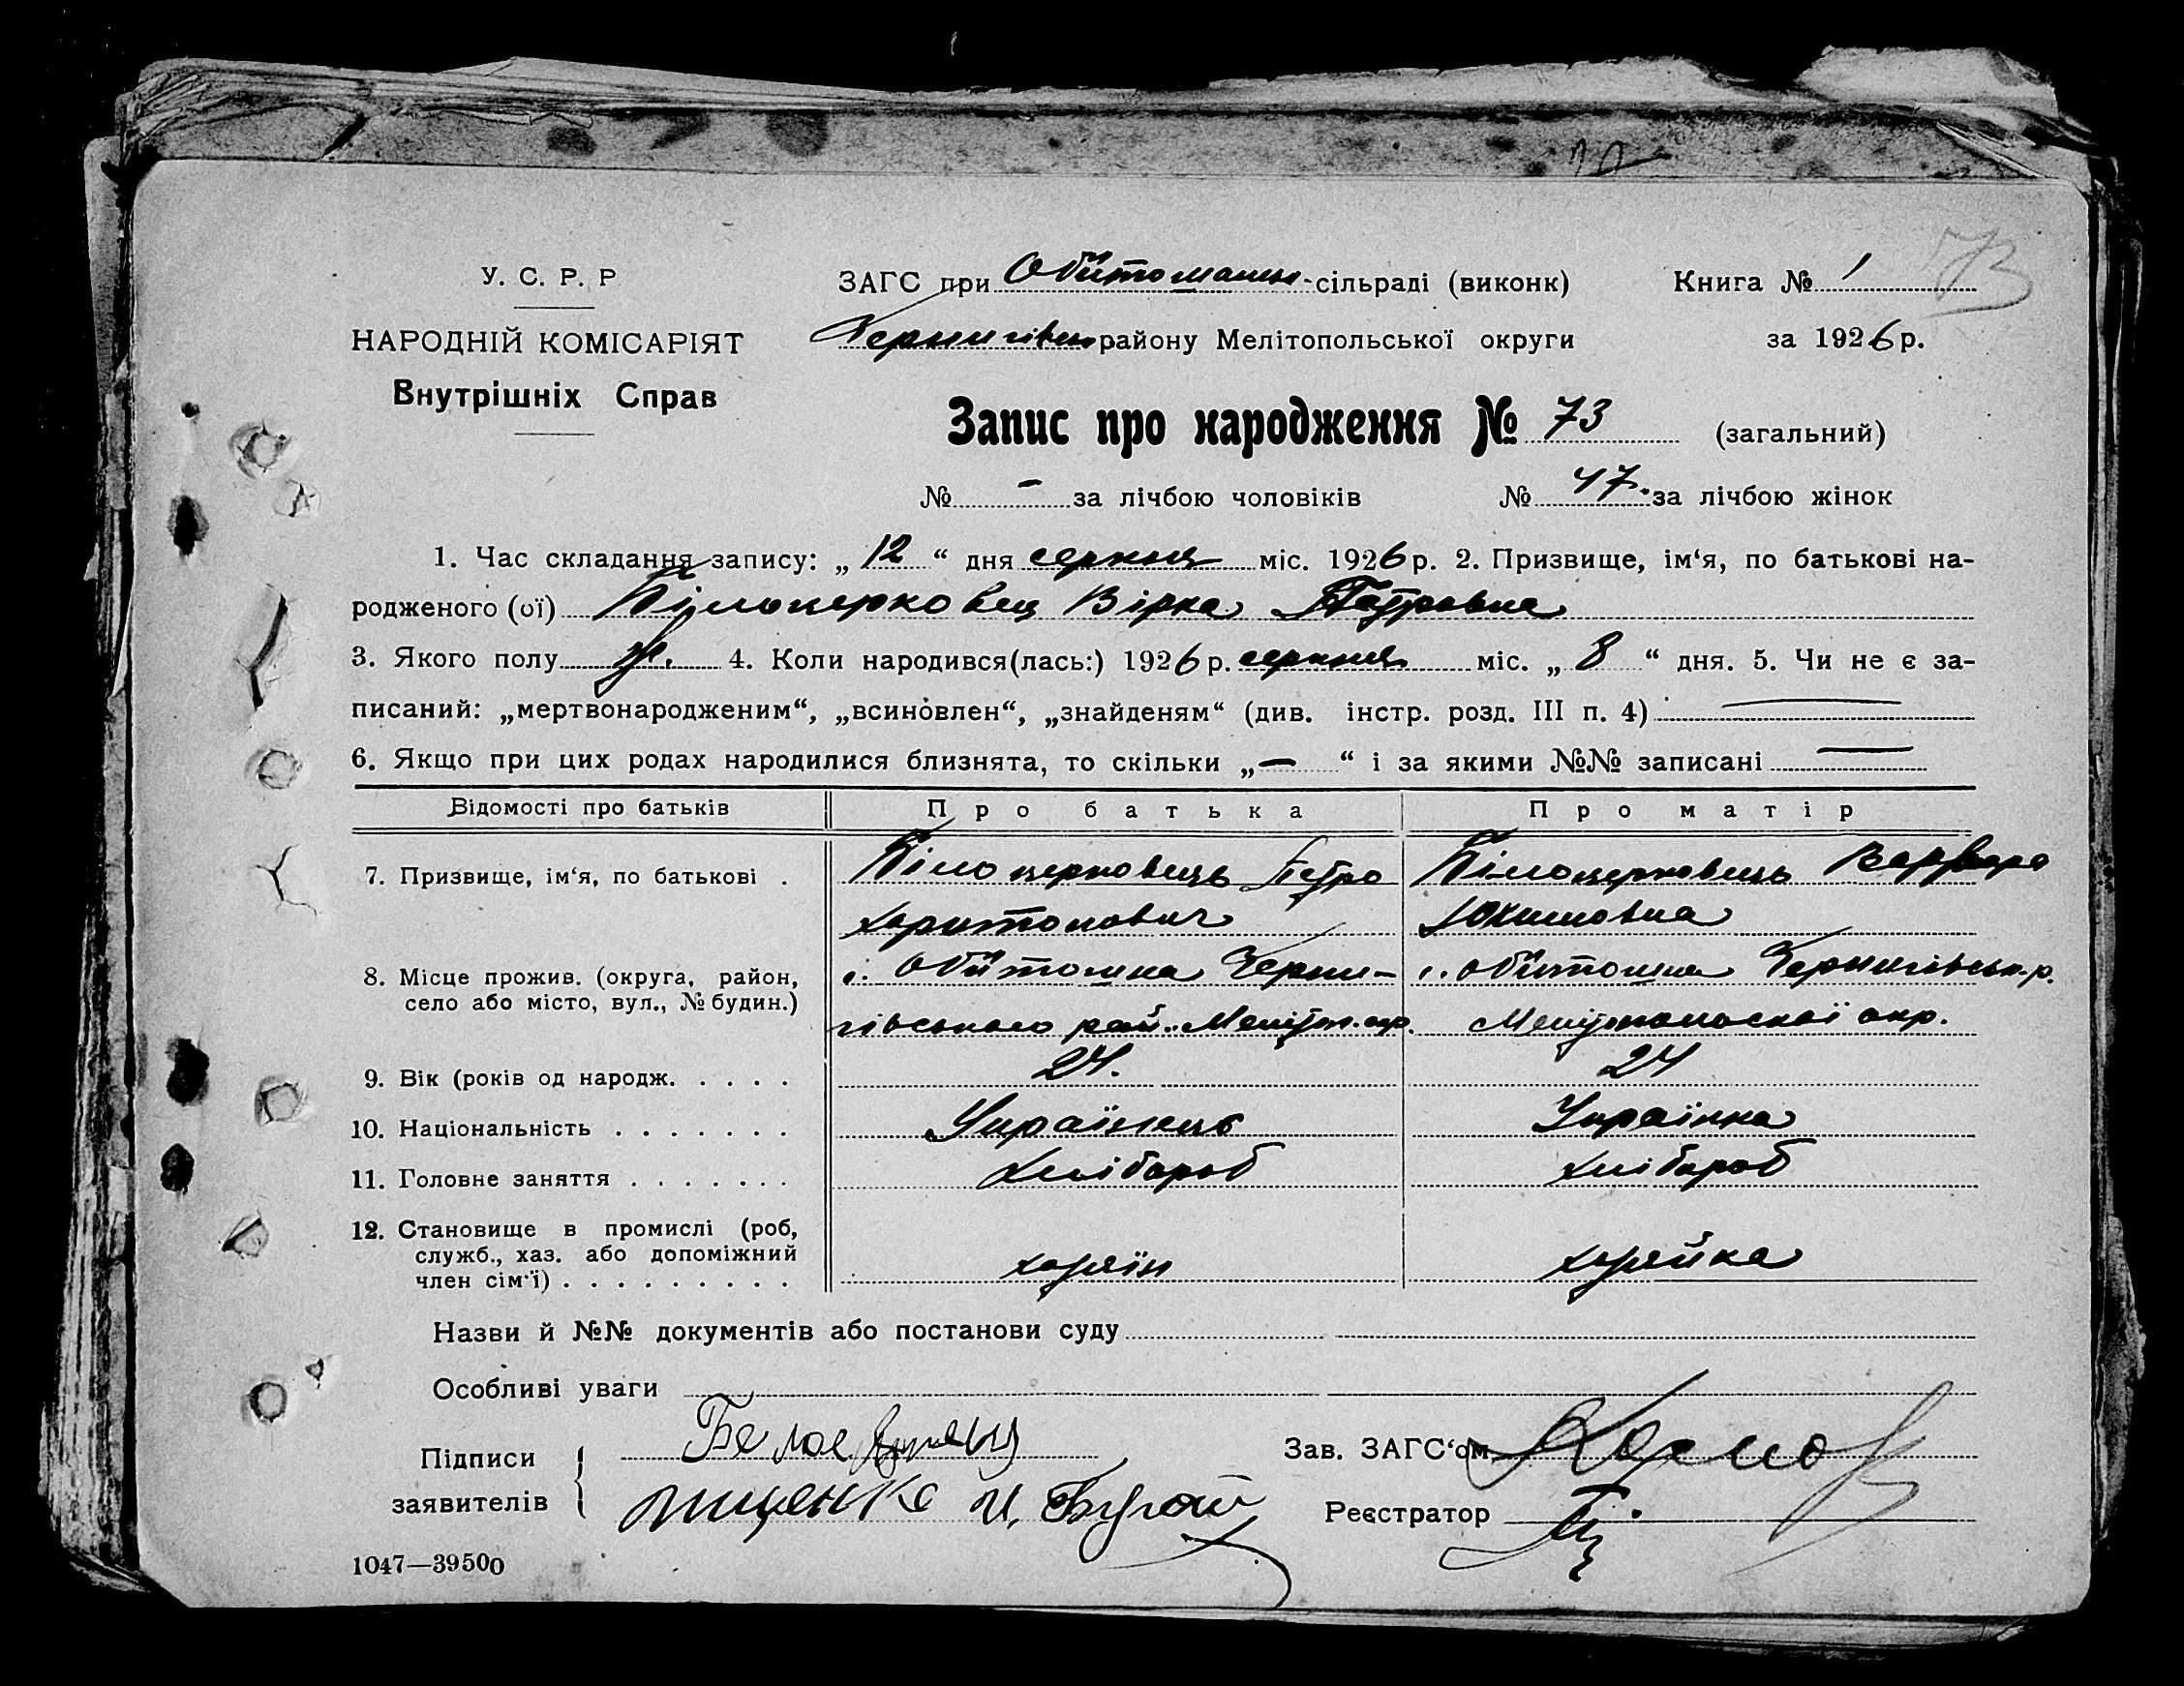 73
У. С. Р. Р
ЗАГС при Обітошан.-сільраді (виконк) Книга № 1
НАРОДНІЙ КОМІСАРІЯТ
Чернигівськ району Мелітопольської округи за 1926 р.
Внутрішніх Справ
Запис про народження № 73 (загальний)
№ - за лічбою чоловіків № 47. за лічбою жінок
1. Час складання запису: „ 12 “ дня серпня міс. 1926 р. 2. Призвище, ім‘я, по батькові на-
родженого (ої) Білоцерковец Вірка Петровна
3. Якого полу ж. 4. Коли народився(лась:) 1926 р. серпня міс. „ 8 “ дня. 5. Чи не є за-
писаний: „мертвонародженим“, „всиновлен“, „знайденям“ (див. інстр. розд. III п. 4) —
6. Якщо при цих родах народилися близнята, то скільки „ — “ і за якими №№ записані —
Відомості про батьків Про батька Про матір
7. Призвище, ім‘я, по батькові . Білоцерковець Петро Білоцерковець Варвара
Харитонович Юхимовна
8. Місце прожив. (округа, район, с. Обітошна Черни- с. Обітошна Чернигівськ. р.
село або місто, вул., № будин.) гівського рай. Меліт. окр. Мелітопольскої окр.
9. Вік (років од народж. . . . . 24. 24
10. Національність . . . . . . . Українець Українка
11. Головне заняття . . . . . . . Хлібороб Хлібороб
12. Становище в промислі (роб,
служб., хаз. або допоміжний
член сім‘ї) . . . . . . . . . хазяїн хазяйка
Назви й №№ документів або постанови суду
Особливі уваги
Підписи Зав. ЗАГС‘ом
заявителів Реєстратор
1047—39500